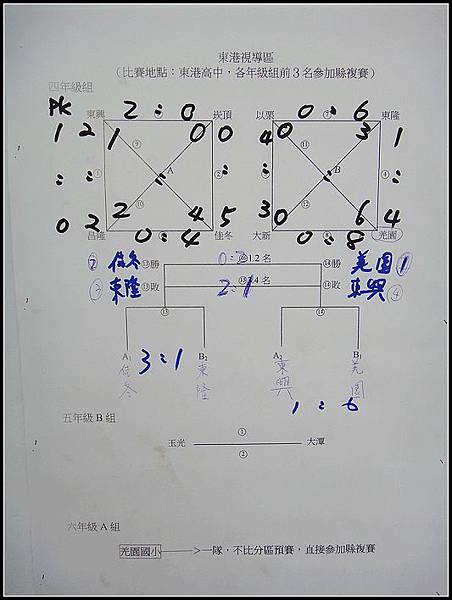 東港視導區
（比賽地點：東港高中，各年級組前3名參加縣複賽）
四年級組
PK
東興 2：0 崁頂 以栗 0：6 東隆
1 2 1 0 0 4 0 3 1
⑨ ⑪
： ： ① A ② ： ： ③ B ④ ：
⑩ ⑫
0 2 2 4 5 3 0 6 4
昌隆 0：4 佳冬 大新 0：8 光園
② 佳冬 ⑬勝 0:2 1.2名 ⑭勝 羌園 ①
③ 東隆 ⑬敗 2:1 3.4名 ⑭敗 東興 ④
⑬ ⑭
A₁ 3：1 B₂ A₂ B₁
佳冬 東隆 東興 羌園
1：6
五年級 B 組
①
玉光 大潭
②
六年級 A 組
光園國小 一隊，不比分區預賽，直接參加縣複賽